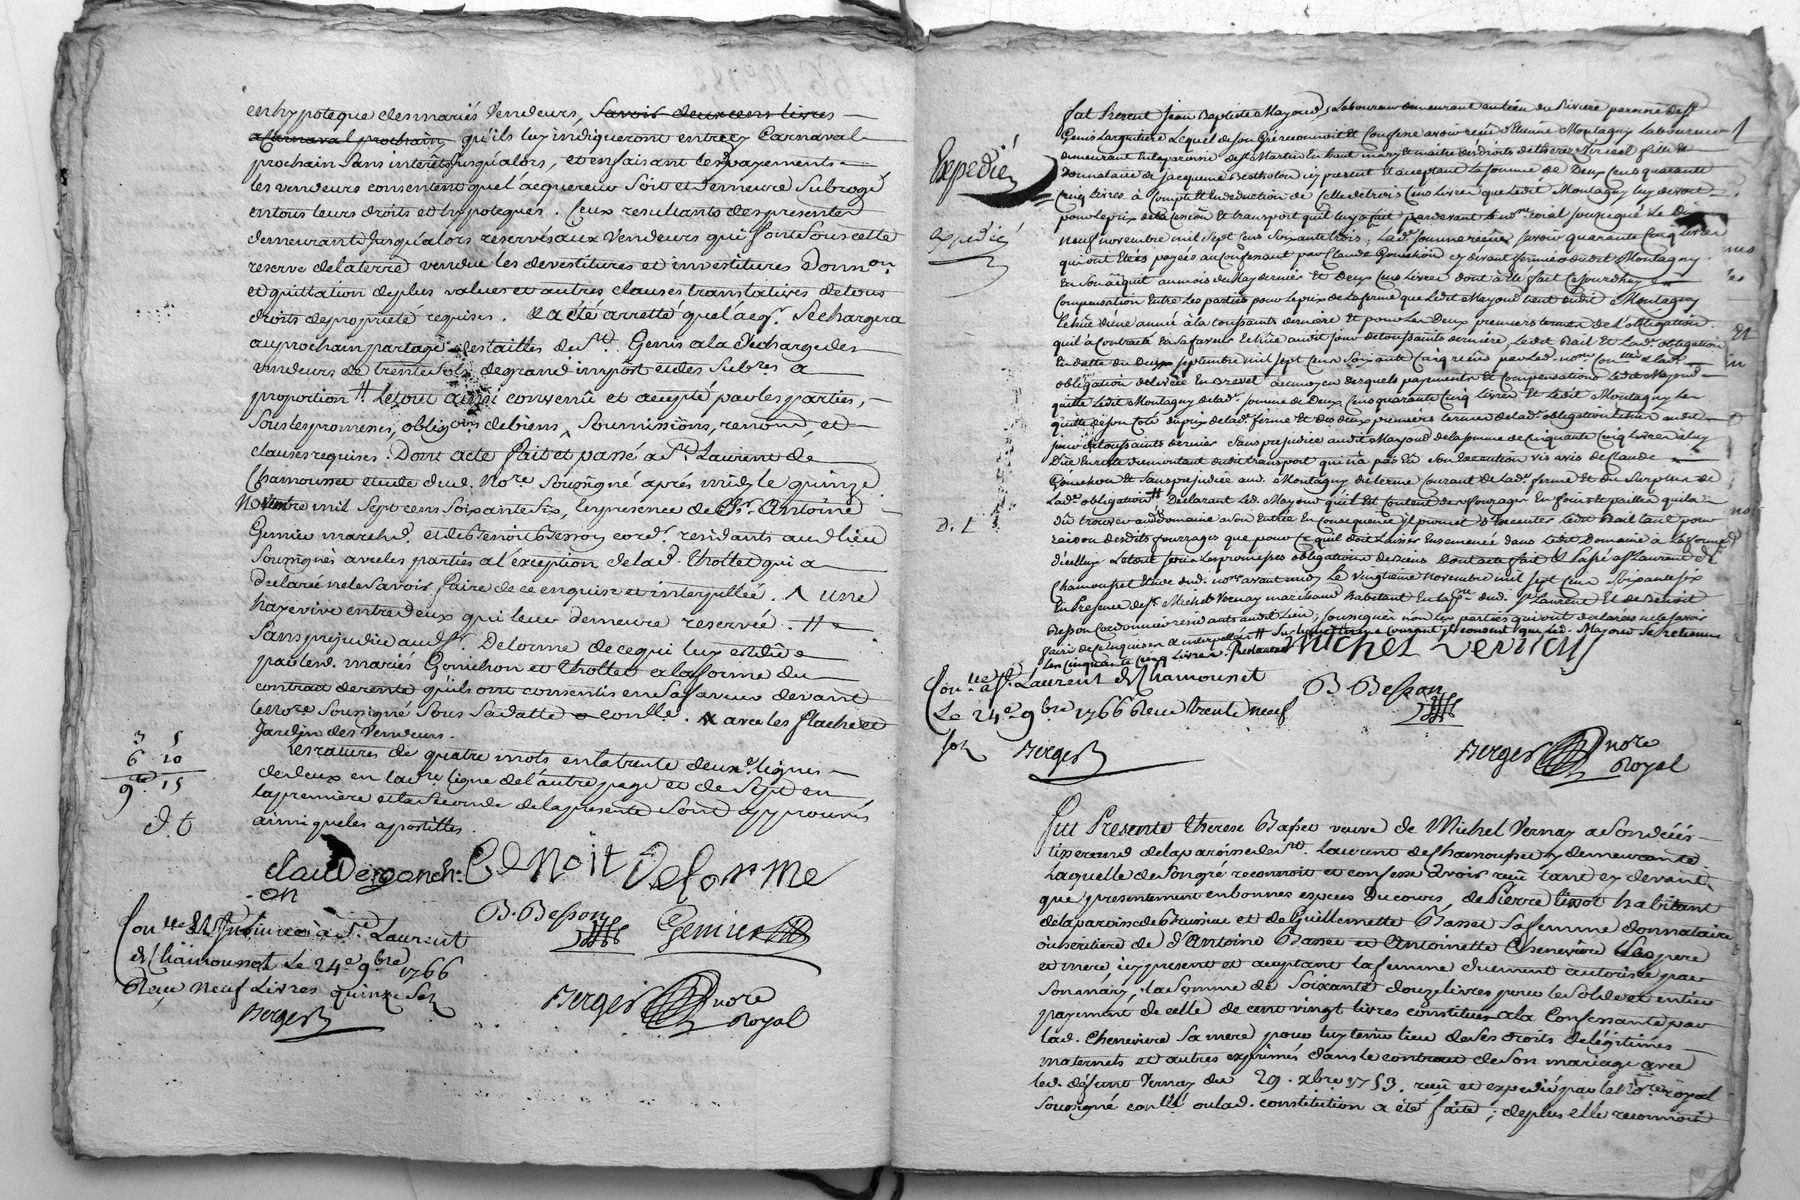 en hypoteque des mariés Vendeurs, Savoir deux cens livres
a Carnaval prochain, qu'ils luy indiqueront entre cy Carnaval
prochain Sans interêts Jusqu'alors, et en faisant les payements
les vendeurs consentent que l'acquereur Soit et demeure Subrogé
en tous leurs droits et hypoteques. Ceux resultants des presentes
demeurants Jusqu'alors reservés aux Vendeurs qui font Sous cette
reserve de la terre vendue les devestitures et investitures Donnon.
et quittation de plus values et autres clauses translatives de tous
droits de proprieté requises. a été arretté que l'acqr. Se chargera
au prochain partage des tailles de St. Genis a la décharge des
vendeurs de trente Sols de grand impôt et des Subres a
proportion # Le tout ainsi convenû et accepté par les parties,
Sous les promesses, obligons de biens, Soumissions, renonc, et
clauses requises. Dont acte fait et passé a St. Laurent de
Chamousset etude dud. Nore. Soussigné après midy le quinze
Novembre mil Sept cens Soixante Six, en presence de Sr. Antoine
Gemier marchd. et de Benoit Besson cordr. residants aud. lieu
Soussignés avec les parties a l'exception de lad. thollet qui a
declaré ne le Savoir faire de ce enquise et interpellée. ^ une
haye vive entre deux qui leur demeure reservée. #
Sans prejudice aud. Sr. Delorme de ce qui luy est dû
par lesd. mariés Gonichon et thollet a la forme du
contract de rente qu'ils ont consentis en Sa faveur devant
le Nore Soussigné Sous Sa datte conllé. avec les flache et
Jardin des Vendeurs.
Les ratures de quatre mots en la trente deuxe. ligne
de deux en la dre ligne de l'autre page et de Sept en
la premiere et la Seconde de la presente Sont approuvés
ainsi que les apostilles.
3 5
6 10
9 15
d. t
claude gonch
on
Benoit Delorme
B. Besson
Gemier
Conllé et Insinué à St. Laurent
de Chamousset le 24e 9bre 1766
Reçu neuf Livres quinze Sol
Berger
Berger nore
Royal
Expedié
expedié
D. L
fut Present Jean Baptiste Mayoud, Laboureur demeurant au lieu du Riviere paroisse de St
Genis Largentiere Lequel de son Gré reconnoit Et Confesse avoir reçu d'Etienne Montagny Laboureur
demeurant En la paroisse de St Martin En haut mary Et maitre des droits de therese fille Et
Donnataire de Jacqueme Bertholon icy present Et acceptant La somme de Deux Cens quarante
Cinq livres a Compte Et En deduction de Celle de trois Cens Livres que Ledit Montagny luy devoit
pour Le prix de la Cession Et transport qu'il luy a fait pardevant Le nore royal soussigné Le Dix
neuf novembre mil Sept Cens Soixante trois, Lade somme reçue savoir quarante Cinq Livres
qui ont Etés payées au Confessant par Claude Gonichon cy devant fermier dudit Montagny
En Son acquit au mois de May dernier Et Deux Cens Livres dont a Eté fait Cejourdhuy
Compensation Entre Les parties pour Le prix de La ferme que Ledit Mayoud tient dudit Montagny
Echüe d'une année à la toussaints derniere Et pour Les Deux premiers termes de l'obligation
qu'il a Contracté En sa faveur Echüe audit jour de toussaints derniere, Ledit Bail Et Lade. obligation
En datte du Deux septembre mil sept Cens Soixante Cinq reçu par Led. nore Conllés Et lade
obligation delivrée En Brevet au moyen desquels payements Et Compensations Ledit Mayoud
quitte Ledit Montagny de lade. somme de Deux Cens quarante Cinq Livres Et Ledit Montagny Le
quitte de son Coté du prix de lad. ferme Et des deux premiers termes de lad. obligation Echus audit
jour de toussaints dernier Sans prejudice audit Mayoud de la somme de Cinquante Cinq Livres a luy
Düe En reste du montant dudit transport qui n'a pas Eû son Execution vis avis de Claude
Gonichon Et Sans prejudice aud. Montagny du terme Courant de Lad. ferme Et du Surplus de
Lade obligation # Declarant Led. Mayoud qu'il Est Content des fourrages En foin Et paille qu'il a
dû trouver aud. domaine a Son Entrée En Consequence il promet d'Executer Ledit Bail tant pour
raison desdits fourrages que pour Ce qu'il doit Laisser Ensemencé dans Ledit Domaine a La forme
d'icelluy Le tout sous Les promesses obligations de biens Dont acte fait Et Passé a St Laurent de
Chamousset Etude dud. nore avant midy Le vingtieme novembre mil sept Cens Soixante six
En Presence de Sr. Michel Vernay marchand habitant En la psse dud. St Laurent Et de Benoit
Besson Cordonnier residants audit Lieu, soussignés non Les parties qui ont declarés ne le savoir
faire de ce Enquises Et interpellées # Sur Le terme Courant Il consent que Led. Mayoud se retienne
Les Cinquante Cinq Livres restantes
Michel Vernay
Conllé a St. Laurent de Chamousset
Le 24e 9bre 1766 Reçu trente neuf
sols Berger
B. Besson
Berger nore
Royal
Fut Presente therese Basset veuve de Michel Vernay a Son décés
tixerand de la paroisse de St. Laurent de Chamousset y demeurante
Laquelle de Son gré reconnoit et confesse avoir reçu tant cy devant
que presentement en bonnes especes Du cours, de Pierre tissot habitant
de la paroisse de Brussieu et de Guillemette Basset Sa femme donnataire
ou heritiere de d'Antoine Basset et Antoinette Cheneviere Ses pere
et mere, icy present et acceptant la femme duement autorisée par
Son mary, la Somme de Soixante douze livres pour le Solde et entier
payement de celle de cent vingt livres constituées a la Confessante par
lad. Cheneviere Sa mere pour luy tenir lieu de Ses droits de légitimes
maternels et autres exprimés dans le contract de Son mariage avec
led. défunt Vernay du 29. xbre 1753. reçu et expedié par le Nore royal
Soussigné conllé ou lad. constitution a été faite; de plus elle reconnoit